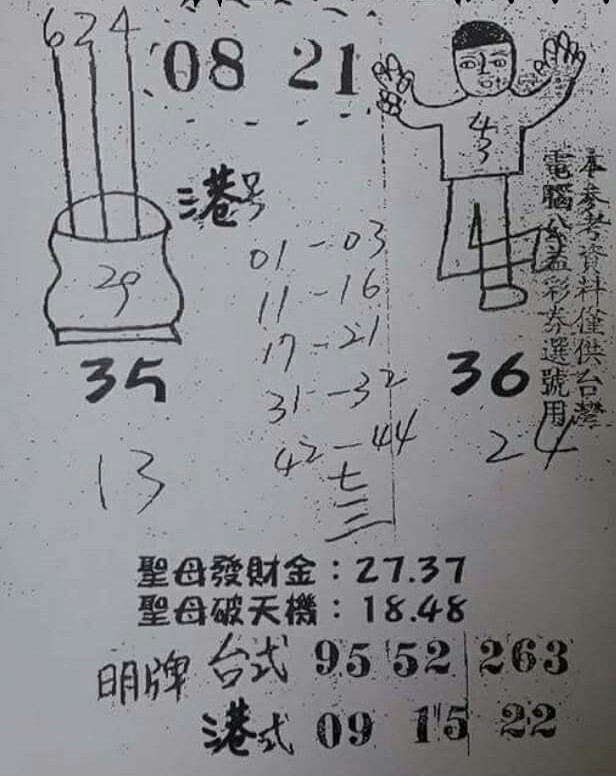 624
08 21
港号
43
29
01-03
11-16
17-21
31-32
42-44
七
三
35
36
13
24
本參考資料僅供台灣
電腦公益彩券選號用
聖母發財金：27.37
聖母破天機：18.48
明牌
台式 95 52 263
港式 09 15 22